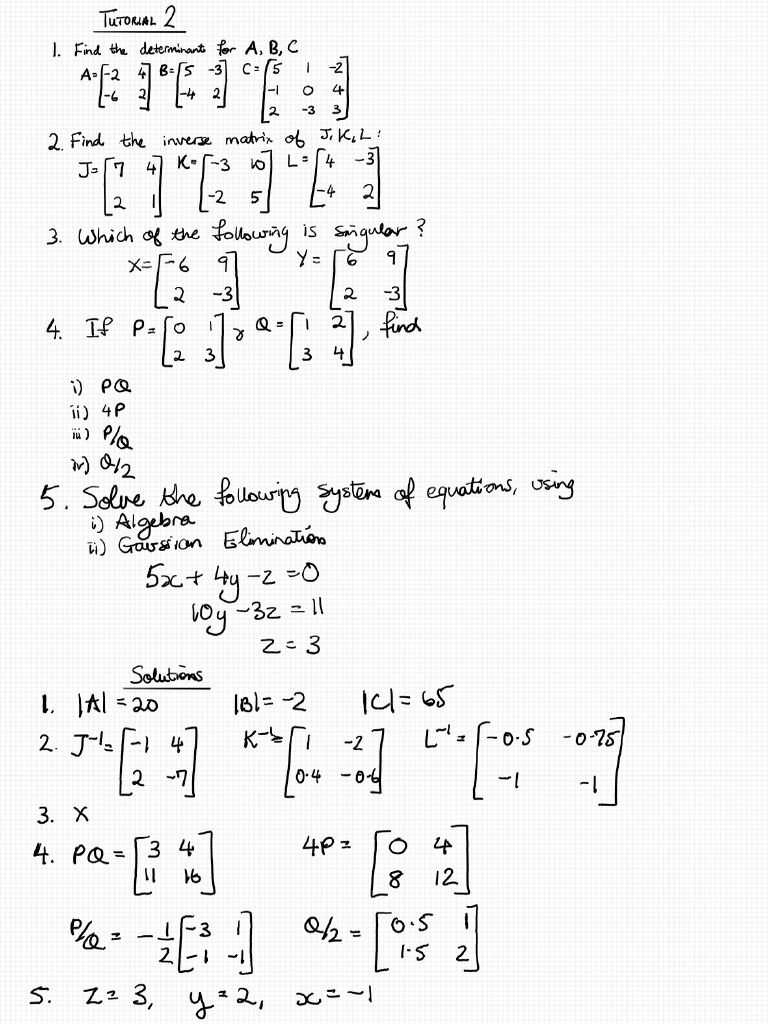 TUTORIAL 2
1. Find the determinants for A, B, C
A=[-2 4 B=[5 -3] C=[5 1 -2
-6 2] -4 2] -1 0 4
2 -3 3]
2. Find the inverse matrix of J, K, L:
J=[7 4 K=[-3 10] L=[4 -3]
2 1] -2 5] -4 2]
3. Which of the following is singular?
X=[-6 9] Y=[6 9]
2 -3] 2 -3]
4. If P=[0 1] & Q=[1 2], find
2 3] 3 4]
i) PQ
ii) 4P
iii) P/Q
iv) Q/2
5. Solve the following system of equations, using
i) Algebra
ii) Gaussian Elimination
5x+4y-z=0
10y-3z=11
z=3
Solutions
1. |A|=20 |B|=-2 |C|=65
2. J⁻¹=[-1 4] K⁻¹=[1 -2] L⁻¹=[-0.5 -0.75]
2 -7] 0.4 -0.6] -1 -1]
3. X
4. PQ=[3 4] 4P=[0 4]
11 16] 8 12]
P/Q=-1/2[-3 1] Q/2=[0.5 1]
-1 -1] 1.5 2]
5. z=3, y=2, x=-1